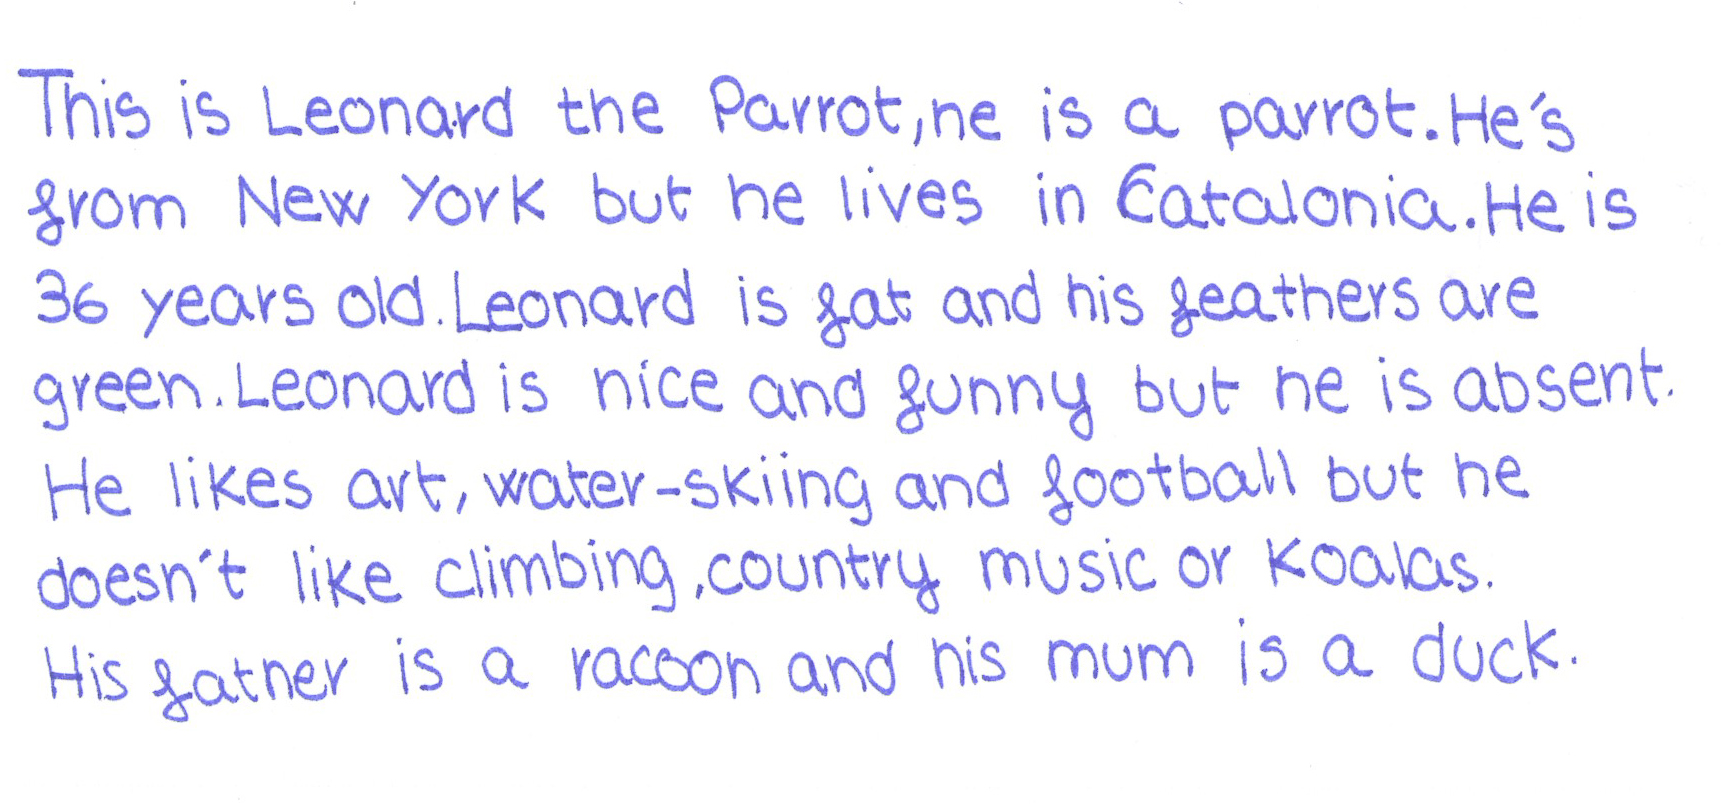 This is Leonard the Parrot, he is a parrot. He's
from New York but he lives in Catalonia. He is
36 years old. Leonard is fat and his feathers are
green. Leonard is nice and funny but he is absent.
He likes art, water-skiing and football but he
doesn't like climbing, country music or koalas.
His father is a racoon and his mum is a duck.